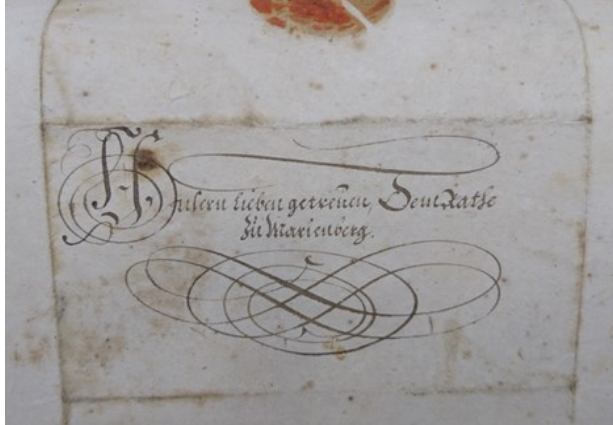 Unsern lieben getreuen, Dem Rathe
zu Marienberg.